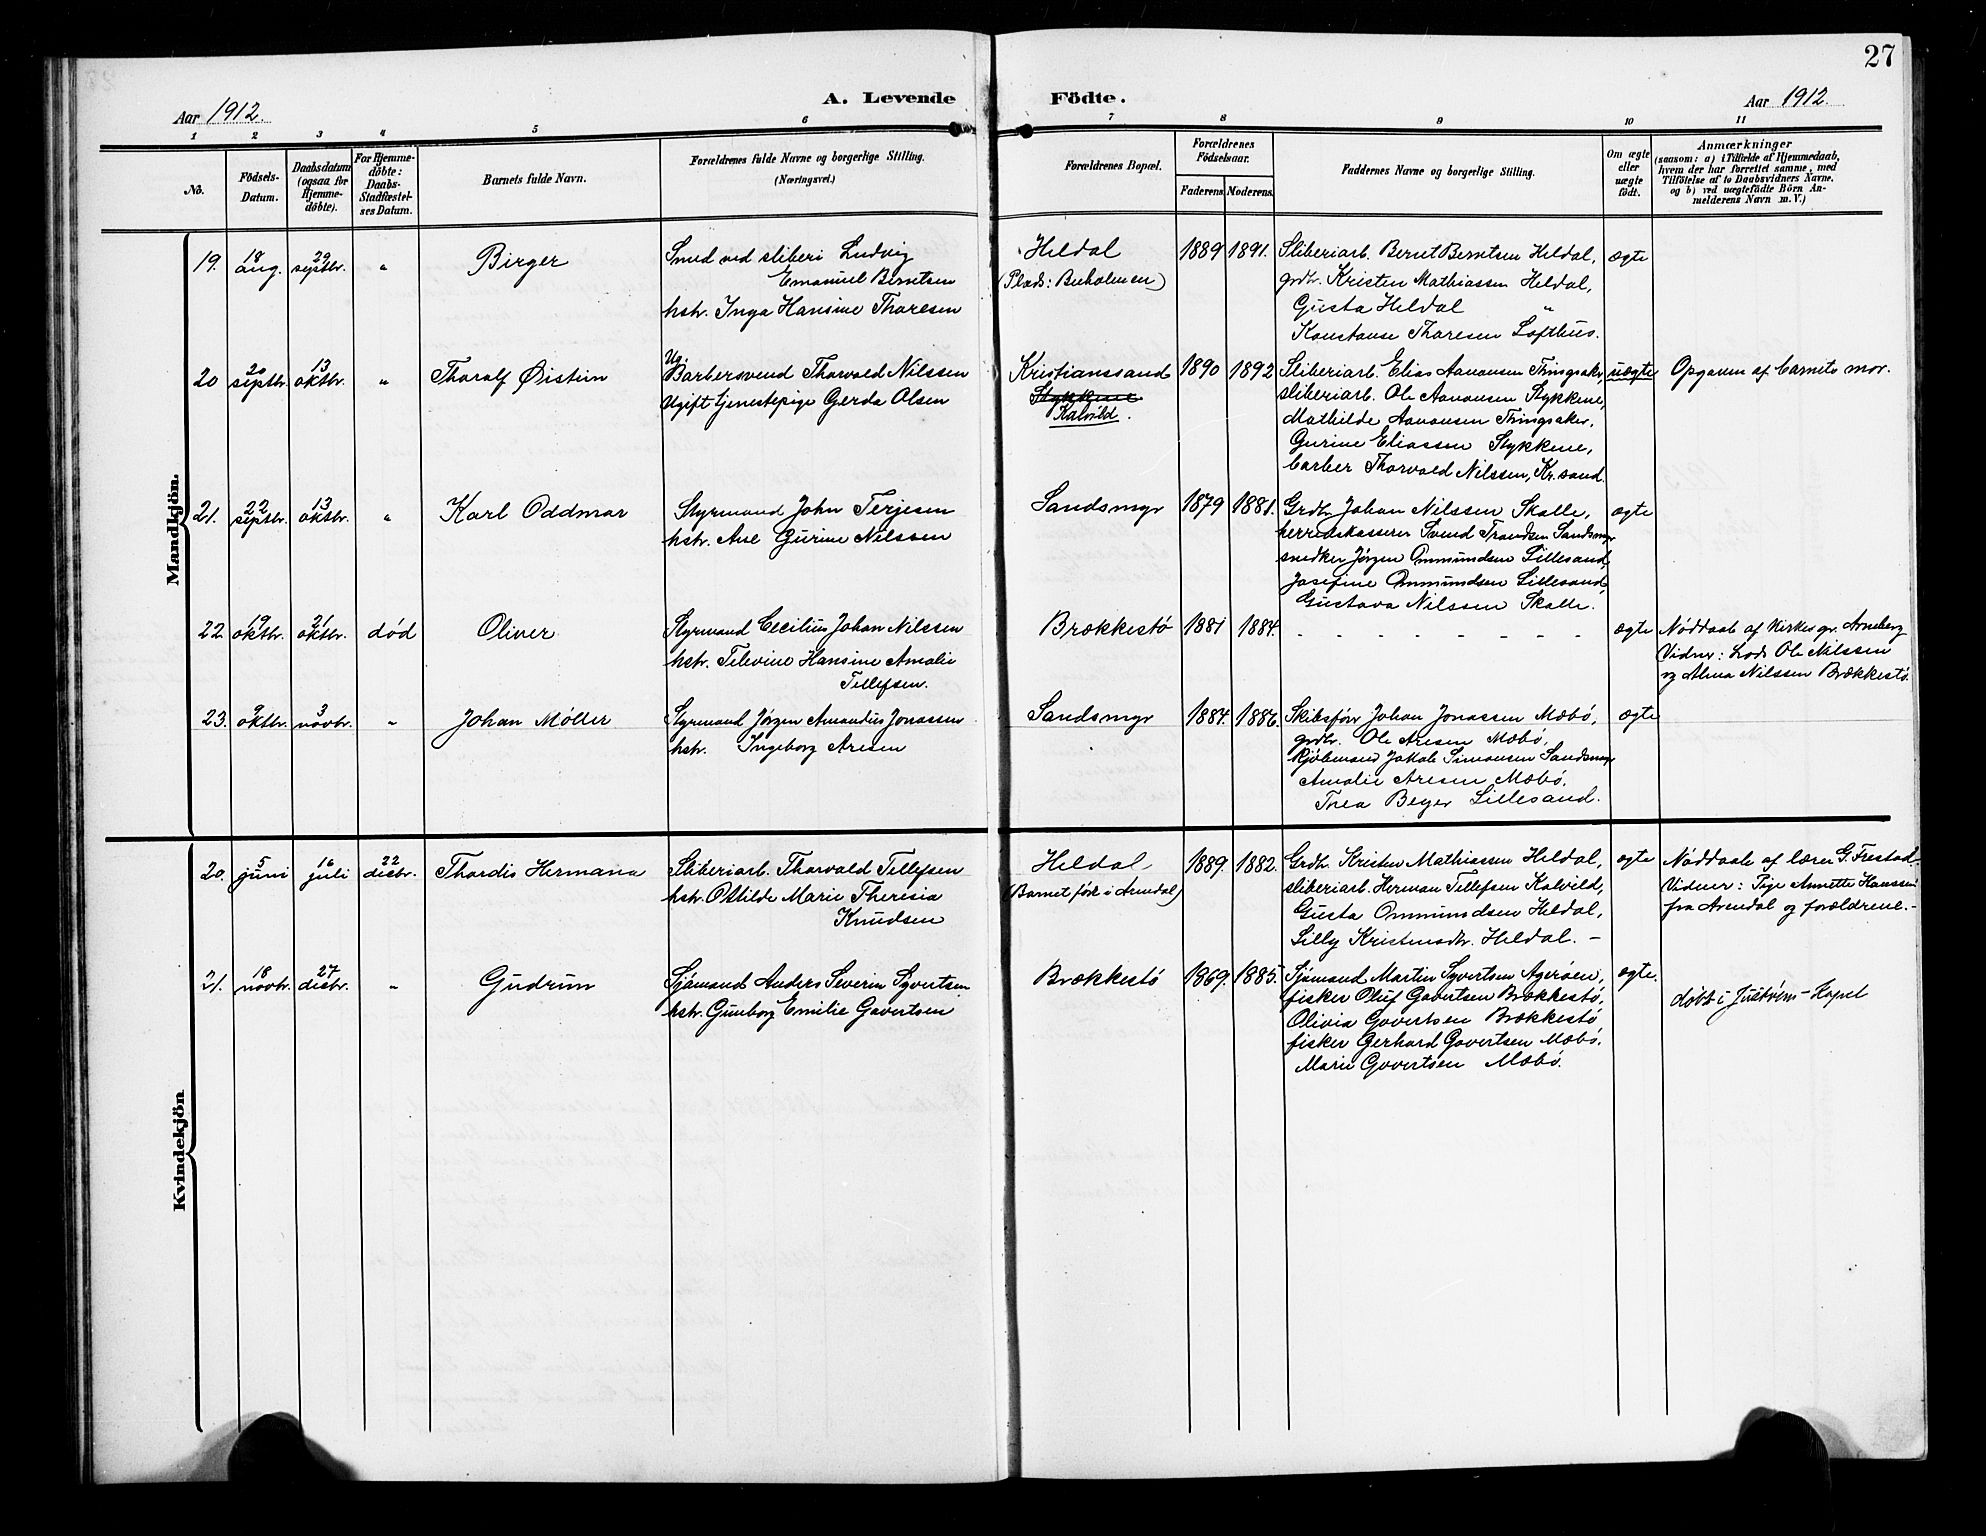 27
Aar 1912.
A. Levende Födte.
Aar 1912.
1 2 3 4 5 6 7 8 9 10 11
No.
Födsels-Datum.
Daabsdatum (ogsaa for Hjemme-döbte).
For Hjemme-döbte: Daabs-Stadfæstel-ses Datum.
Barnets fulde Navn.
Forældrenes fulde Navne og borgerlige Stilling.
(Næringsvei.)
Forældrenes Bopæl.
Forældrenes Födselsaar.
Faderens. Moderens.
Faddernes Navne og borgerlige Stilling.
Om ægte eller uægte født.
Anmærkninger
(saasom: a) i Tilfælde af Hjemmedaab,
hvem der har forrettet samme, med
Tilföielse af to Daabsvidners Navne.
og b) ved uægtefødte Börn An-
melderens Navn m. V.)
Mandkjön.
19. 18 aug. 29 septbr. " Birger
Smed ved sliberi Ludvig
Emanuel Berntsen
hstr. Inga Hansine Thoresen
Heldal
(Plads: Buholmen)
1889 1891.
Sliberiarb. Bernt Berntsen Heldal,
grdbr. Kristen Mathiassen Heldal,
Gusta Heldal "
Konstanse Thoresen Lofthus.
ægte
20 20 septbr. 13 oktbr. " Thoralf Øistein
Ug.
Barbersvend Thorvald Nilssen
Ugift tjenestepige Gerda Olsen
Kristianssand
Stykkene
Kalvild.
1890 1892
Sliberiarb. Elias Aanonsen Tringsaker,
sliberiarb. Ole Aanonsen Stykkene,
Mathilde Aanonsen Tringsaker,
Gurine Eliassen Stykkene,
barber Thorvald Nilssen, Kr.sand.
uægte
Opgaven af barnets mor.
21. 22 septbr. 13 oktbr. " Karl Oddmar
Styrmand John Terjesen
hstr. Ane Gurine Nilssen
Sandsmyr
1879 1881.
Grdbr. Johan Nilssen Skalle,
herredskasserer Svend Trondsen Sandsmyr
snedker Jørgen Ommundsen Lillesand,
Josefine Ommundsen Lillesand,
Gustava Nilssen Skalle.
ægte
22. 19 oktbr. 21 oktbr. død Oliver
Styrmand Cecilius Johan Nilssen
hstr. Televine Hansine Amalie
Tellefsen.
Brækkestø
1881 1884.
- - - - - - - -
ægte
Nøddaab af kirkesgr. Arneberg
Vidner: Lods Ole Nilssen
og Alma Nilssen Brækkestø.
23. 9 oktbr. 3 novbr. " Johan Møller
Styrmand Jørgen Amandus Jonassen
hstr. Ingeborg Aresen
Sandsmyr
1884. 1886.
Skibsfører Johan Jonassen Mæbø,
grdbr. Ole Aresen Mæbø,
kjøbmand Jakob Simonsen Sandsmyr
Amalie Aresen Mæbø,
Thea Beyer Lillesand.
ægte
Kvindekjön
20. 5 juni 16 juli 22 decbr. Thordis Hermana
Sliberiarb. Thorvald Tellefsen
hstr. Othilde Marie Theresia
Knudsen
Heldal
(Barnet født i Arendal)
1889. 1882.
Grdbr. Kristen Mathiassen Heldal,
sliberiarb. Herman Tellefsen Kalvild,
Gusta Ommundsen Heldal,
Lilly Kristensdtr. Heldal. -
ægte
Nøddaab af lærer G. Frestad.
Vidner: Pige Annette Hanssen
fra Arendal og forældrene.-
21. 18 novbr. 27 decbr. " Gudrun
Sjømand Anders Severin Syvertsen
hstr. Gunborg Emilie Govertsen
Brækkestø
1869. 1885.
Sjømand Martin Syvertsen Agerøen,
fisker Oluf Govertsen Brækkestø,
Olivia Govertsen Brækkestø
fisker Gerhard Govertsen Mæbø.
Marie Govertsen Mæbø.
ægte.
døbt i Justøens-Kapel